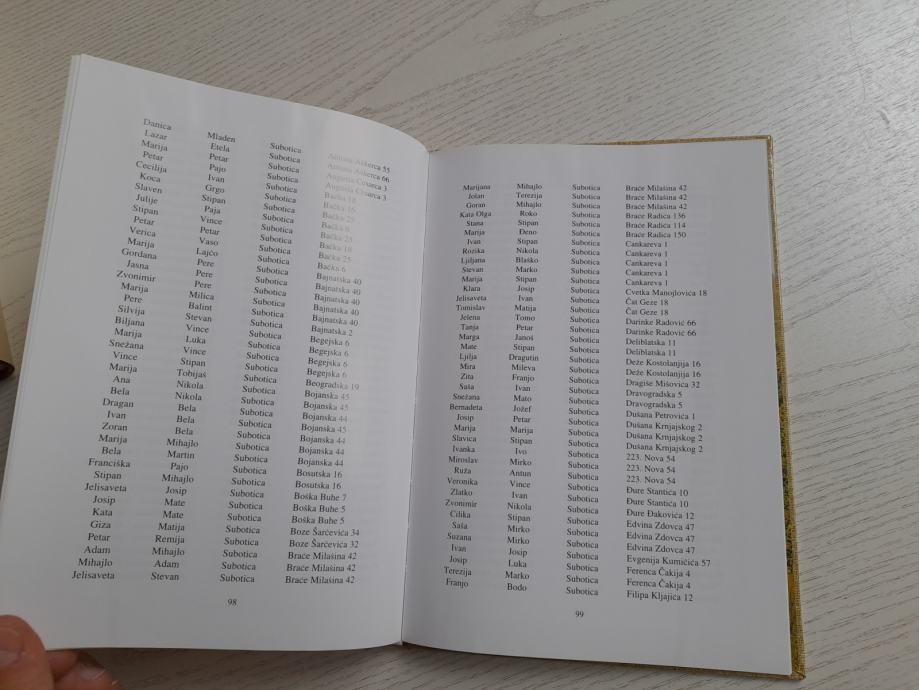 Danica Mladen Subotica Antona Aškerca 55
Lazar Etela Subotica Antona Aškerca 66
Marija Petar Subotica Augusta Cesarca 3
Petar Pajo Subotica Augusta Cesarca 3
Cecilija Ivan Subotica Bačka 18
Koca Grgo Subotica Bačka 16
Slaven Stipan Subotica Bačka 25
Julije Paja Subotica Bačka 6
Stipan Vince Subotica Bačka 25
Petar Petar Subotica Bačka 18
Verica Vaso Subotica Bačka 25
Marija Lajčo Subotica Bačka 6
Gordana Pere Subotica Bajnatska 40
Jasna Pere Subotica Bajnatska 40
Zvonimir Pere Subotica Bajnatska 40
Marija Milica Subotica Bajnatska 40
Pere Balint Subotica Bajnatska 40
Silvija Stevan Subotica Bajnatska 2
Biljana Vince Subotica Begejska 6
Marija Luka Subotica Begejska 6
Snežana Vince Subotica Begejska 6
Vince Stipan Subotica Begejska 6
Marija Tobijaš Subotica Beogradska 19
Ana Nikola Subotica Bojanska 45
Bela Nikola Subotica Bojanska 45
Dragan Bela Subotica Bojanska 44
Ivan Bela Subotica Bojanska 45
Zoran Bela Subotica Bojanska 44
Marija Mihajlo Subotica Bojanska 44
Bela Martin Subotica Bojanska 44
Franciška Pajo Subotica Bosutska 16
Stipan Mihajlo Subotica Bosutska 16
Jelisaveta Josip Subotica Boška Buhe 7
Josip Mate Subotica Boška Buhe 5
Kata Mate Subotica Boška Buhe 5
Giza Matija Subotica Boze Šarčevića 34
Petar Remija Subotica Boze Šarčevića 32
Adam Mihajlo Subotica Braće Milašina 42
Mihajlo Adam Subotica Braće Milašina 42
Jelisaveta Stevan Subotica Braće Milašina 42
98
Marijana Mihajlo Subotica Braće Milašina 42
Jolan Terezija Subotica Braće Milašina 42
Goran Mihajlo Subotica Braće Milašina 42
Kata Olga Roko Subotica Braće Radića 136
Stana Stipan Subotica Braće Radića 114
Marija Đeno Subotica Braće Radića 150
Ivan Stipan Subotica Cankareva 1
Rozika Nikola Subotica Cankareva 1
Ljiljana Blaško Subotica Cankareva 1
Stevan Marko Subotica Cankareva 1
Marija Stipan Subotica Cankareva 1
Klara Josip Subotica Cvetka Manojlovića 18
Jelisaveta Ivan Subotica Čat Geze 18
Tomislav Matija Subotica Čat Geze 18
Jelena Tomo Subotica Darinke Radović 66
Tanja Petar Subotica Darinke Radović 66
Marga Janoš Subotica Deliblatska 11
Mate Stipan Subotica Deliblatska 11
Ljilja Dragutin Subotica Deže Kostolanjija 16
Mira Mileva Subotica Deže Kostolanjija 16
Zita Franjo Subotica Dragiše Mišovica 32
Saša Ivan Subotica Dravogradska 5
Snežana Mato Subotica Dravogradska 5
Bernadeta Jožef Subotica Dušana Petrovića 1
Josip Petar Subotica Dušana Krnjajskog 2
Marija Marija Subotica Dušana Krnjajskog 2
Slavica Stipan Subotica Dušana Krnjajskog 2
Ivanka Ivo Subotica 223. Nova 54
Miroslav Mirko Subotica 223. Nova 54
Ruža Antun Subotica 223. Nova 54
Veronika Vince Subotica Đure Stantića 10
Zlatko Ivan Subotica Đure Stantića 10
Zvonimir Nikola Subotica Đure Đakovića 12
Cilika Stipan Subotica Edvina Zdovca 47
Saša Mirko Subotica Edvina Zdovca 47
Suzana Mirko Subotica Edvina Zdovca 47
Ivan Josip Subotica Evgenija Kumičića 57
Josip Luka Subotica Ferenca Čakija 4
Terezija Marko Subotica Ferenca Čakija 4
Franjo Bodo Subotica Filipa Kljajića 12
99